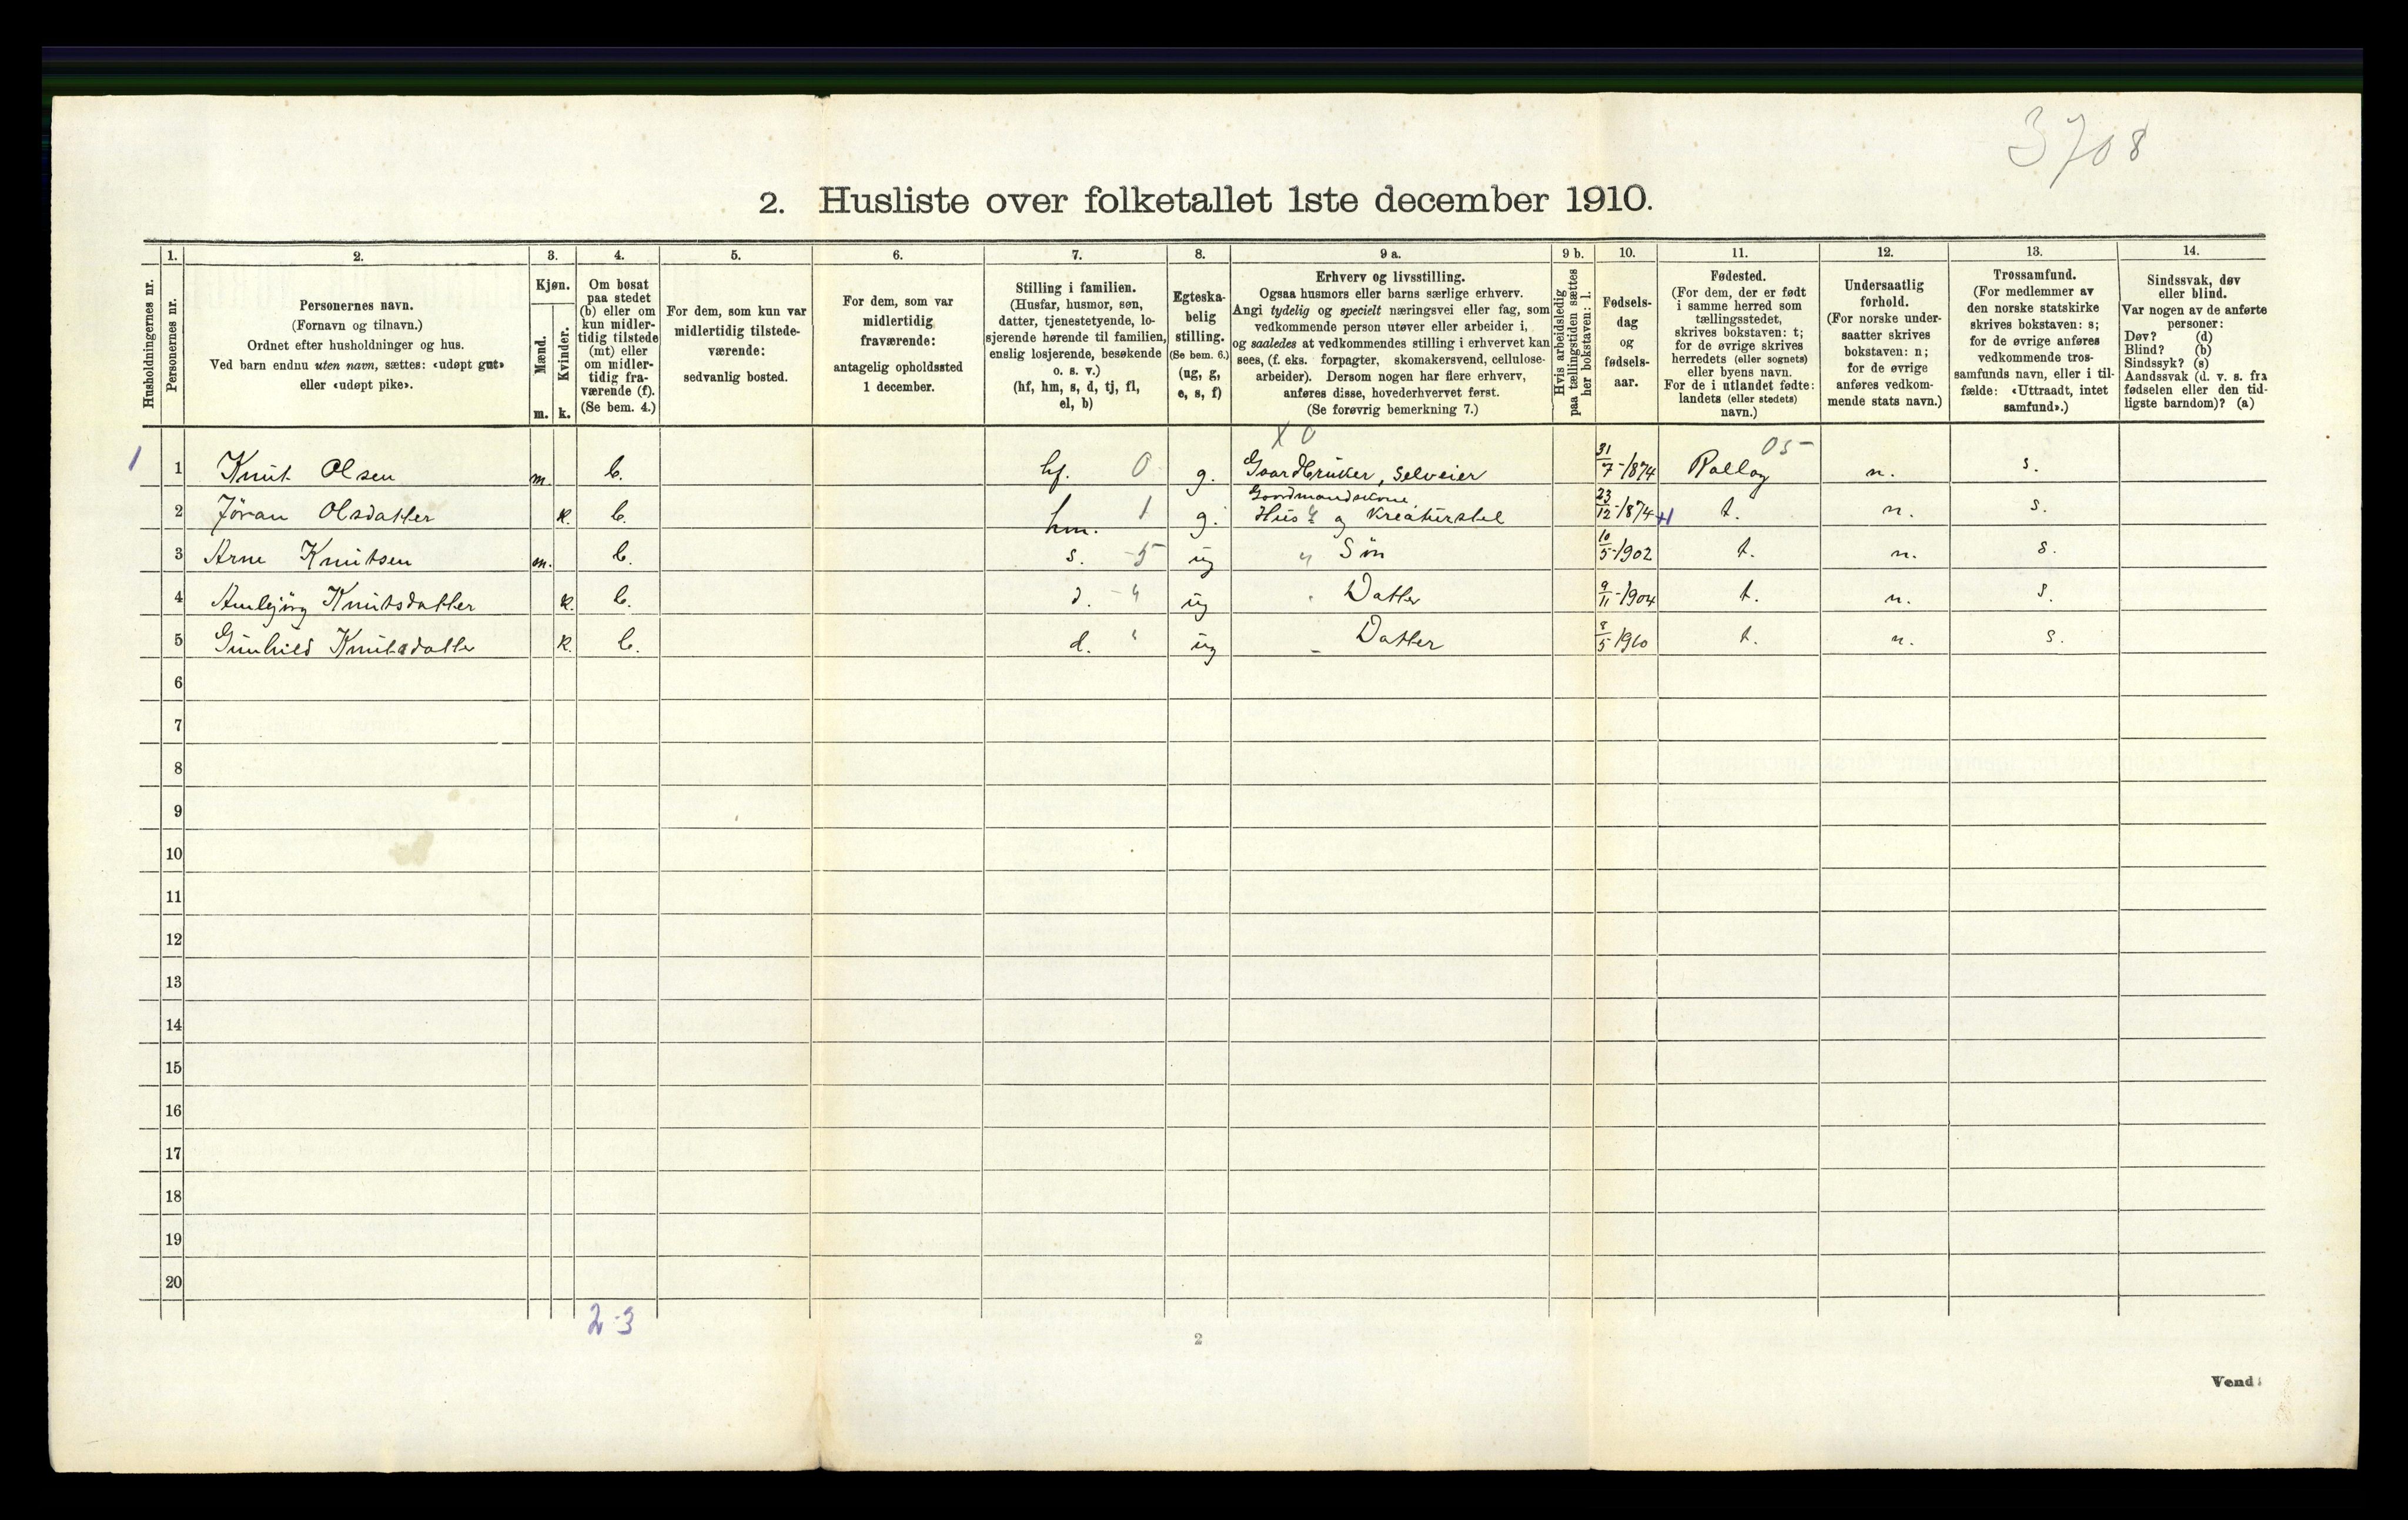 3708
2. Husliste over folketallet 1ste december 1910.
Husholdningernes nr.
1.
Personernes nr.
2.
Personernes navn.
(Fornavn og tilnavn.)
Ordnet efter husholdninger og hus.
Ved barn endnu uten navn, sættes: «udøpt gut»
eller «udøpt pike».
3.
Kjøn.
Mænd.
Kvinder.
m. k.
4.
Om bosat
paa stedet
(b) eller om
kun midler-
tidig tilstede
(mt) eller
om midler-
tidig fra-
værende (f).
(Se bem. 4.)
5.
For dem, som kun var
midlertidig tilstede-
værende:
sedvanlig bosted.
6.
For dem, som var
midlertidig
fraværende:
antagelig opholdssted
1 december.
7.
Stilling i familien.
(Husfar, husmor, søn,
datter, tjenestetyende, lo-
sjerende hørende til familien,
enslig losjerende, besøkende
o. s. v.)
(hf, hm, s, d, tj, fl,
el, b)
8.
Egteska-
belig
stilling.
(Se bem. 6.)
(ug, g,
e, s, f)
9 a.
Erhverv og livsstilling.
Ogsaa husmors eller barns særlige erhverv.
Angi tydelig og specielt næringsvei eller fag, som
vedkommende person utøver eller arbeider i,
og saaledes at vedkommendes stilling i erhvervet kan
sees, (f. eks. forpagter, skomakersvend, cellulose-
arbeider). Dersom nogen har flere erhverv,
anføres disse, hovederhvervet først.
(Se forøvrig bemerkning 7.)
9 b.
Hvis arbeidsledig
paa tællingstiden sættes
her bokstaven: l.
10.
Fødsels-
dag
og
fødsels-
aar.
11.
Fødested.
(For dem, der er født
i samme herred som
tællingsstedet,
skrives bokstaven: t;
for de øvrige skrives
herredets (eller sognets)
eller byens navn.
For de i utlandet fødte:
landets (eller stedets)
navn.)
12.
Undersaatlig
forhold.
(For norske under-
saatter skrives
bokstaven: n;
for de øvrige
anføres vedkom-
mende stats navn.)
13.
Trossamfund.
(For medlemmer av
den norske statskirke
skrives bokstaven: s;
for de øvrige anføres
vedkommende tros-
samfunds navn, eller i til-
fælde: «Uttraadt, intet
samfund».)
14.
Sindssvak, døv
eller blind.
Var nogen av de anførte
personer:
Døv? (d)
Blind? (b)
Sindssyk? (s)
Aandssvak (d. v. s. fra
fødselen eller den tid-
ligste barndom)? (a)
X 0 05-
1 1 Knut Olsen m. b. hf. 0 g. Gaardbruker, selveier 31/7-1874 Rollag n. s.
Gaardmandskone
2 Jøran Olsdatter k. b. hm. 1 g. Hus og Kreaturstel 23/12-1874 t. n. s.
3 Arne Knutsen m. b. s. -5 ug " Søn 10/5-1902 t. n. s.
4 Ambjørg Knutsdatter k. b. d. - " ug Datter 9/11-1904 t. n. s.
5 Gunhild Knutsdatter k. b. d. " ug - Datter 8/5 1910 t. n. s.
6
7
8
9
10
11
12
13
14
15
16
17
18
19
20
2-3
2
Vend!